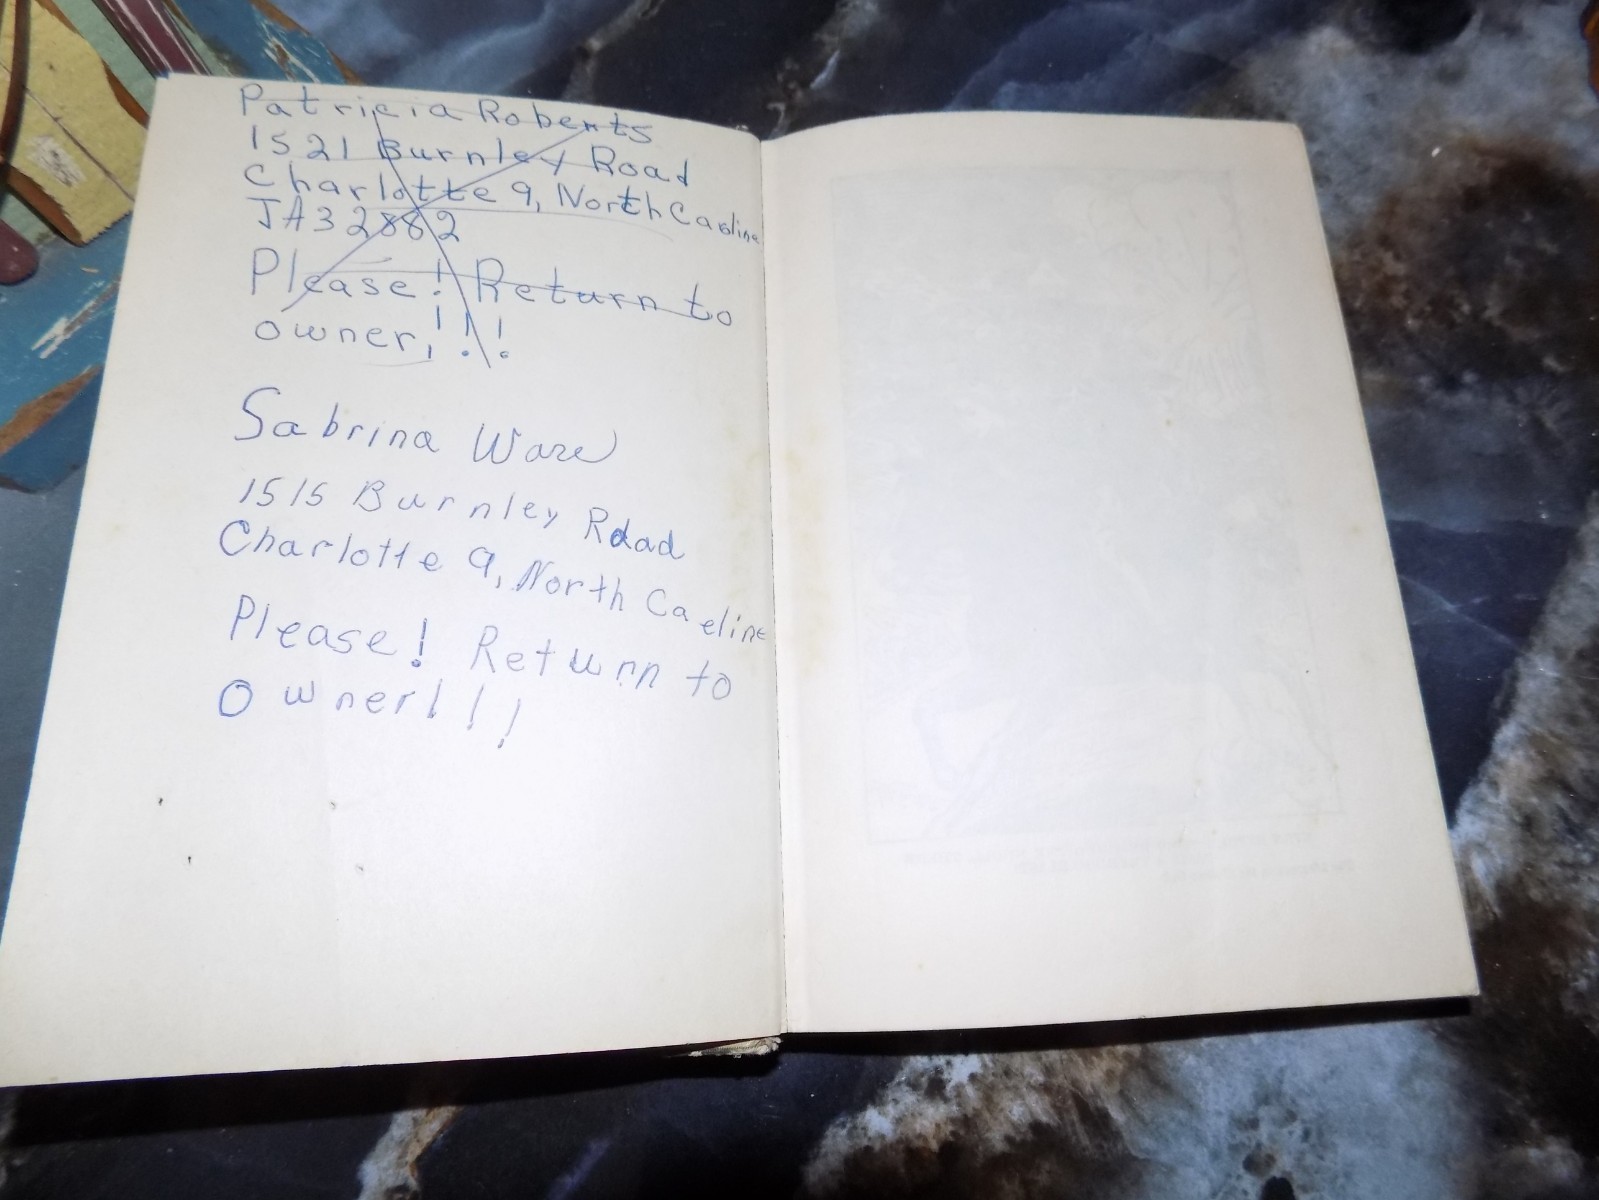 Patricia Roberts
1521 Burnley Road
Charlotte 9, North Caroline
JA32882
Please! Return to
owner,!!!
Sabrina Ware
1515 Burnley Road
Charlotte 9, North Caeline
Please! Return to
Owner!!!